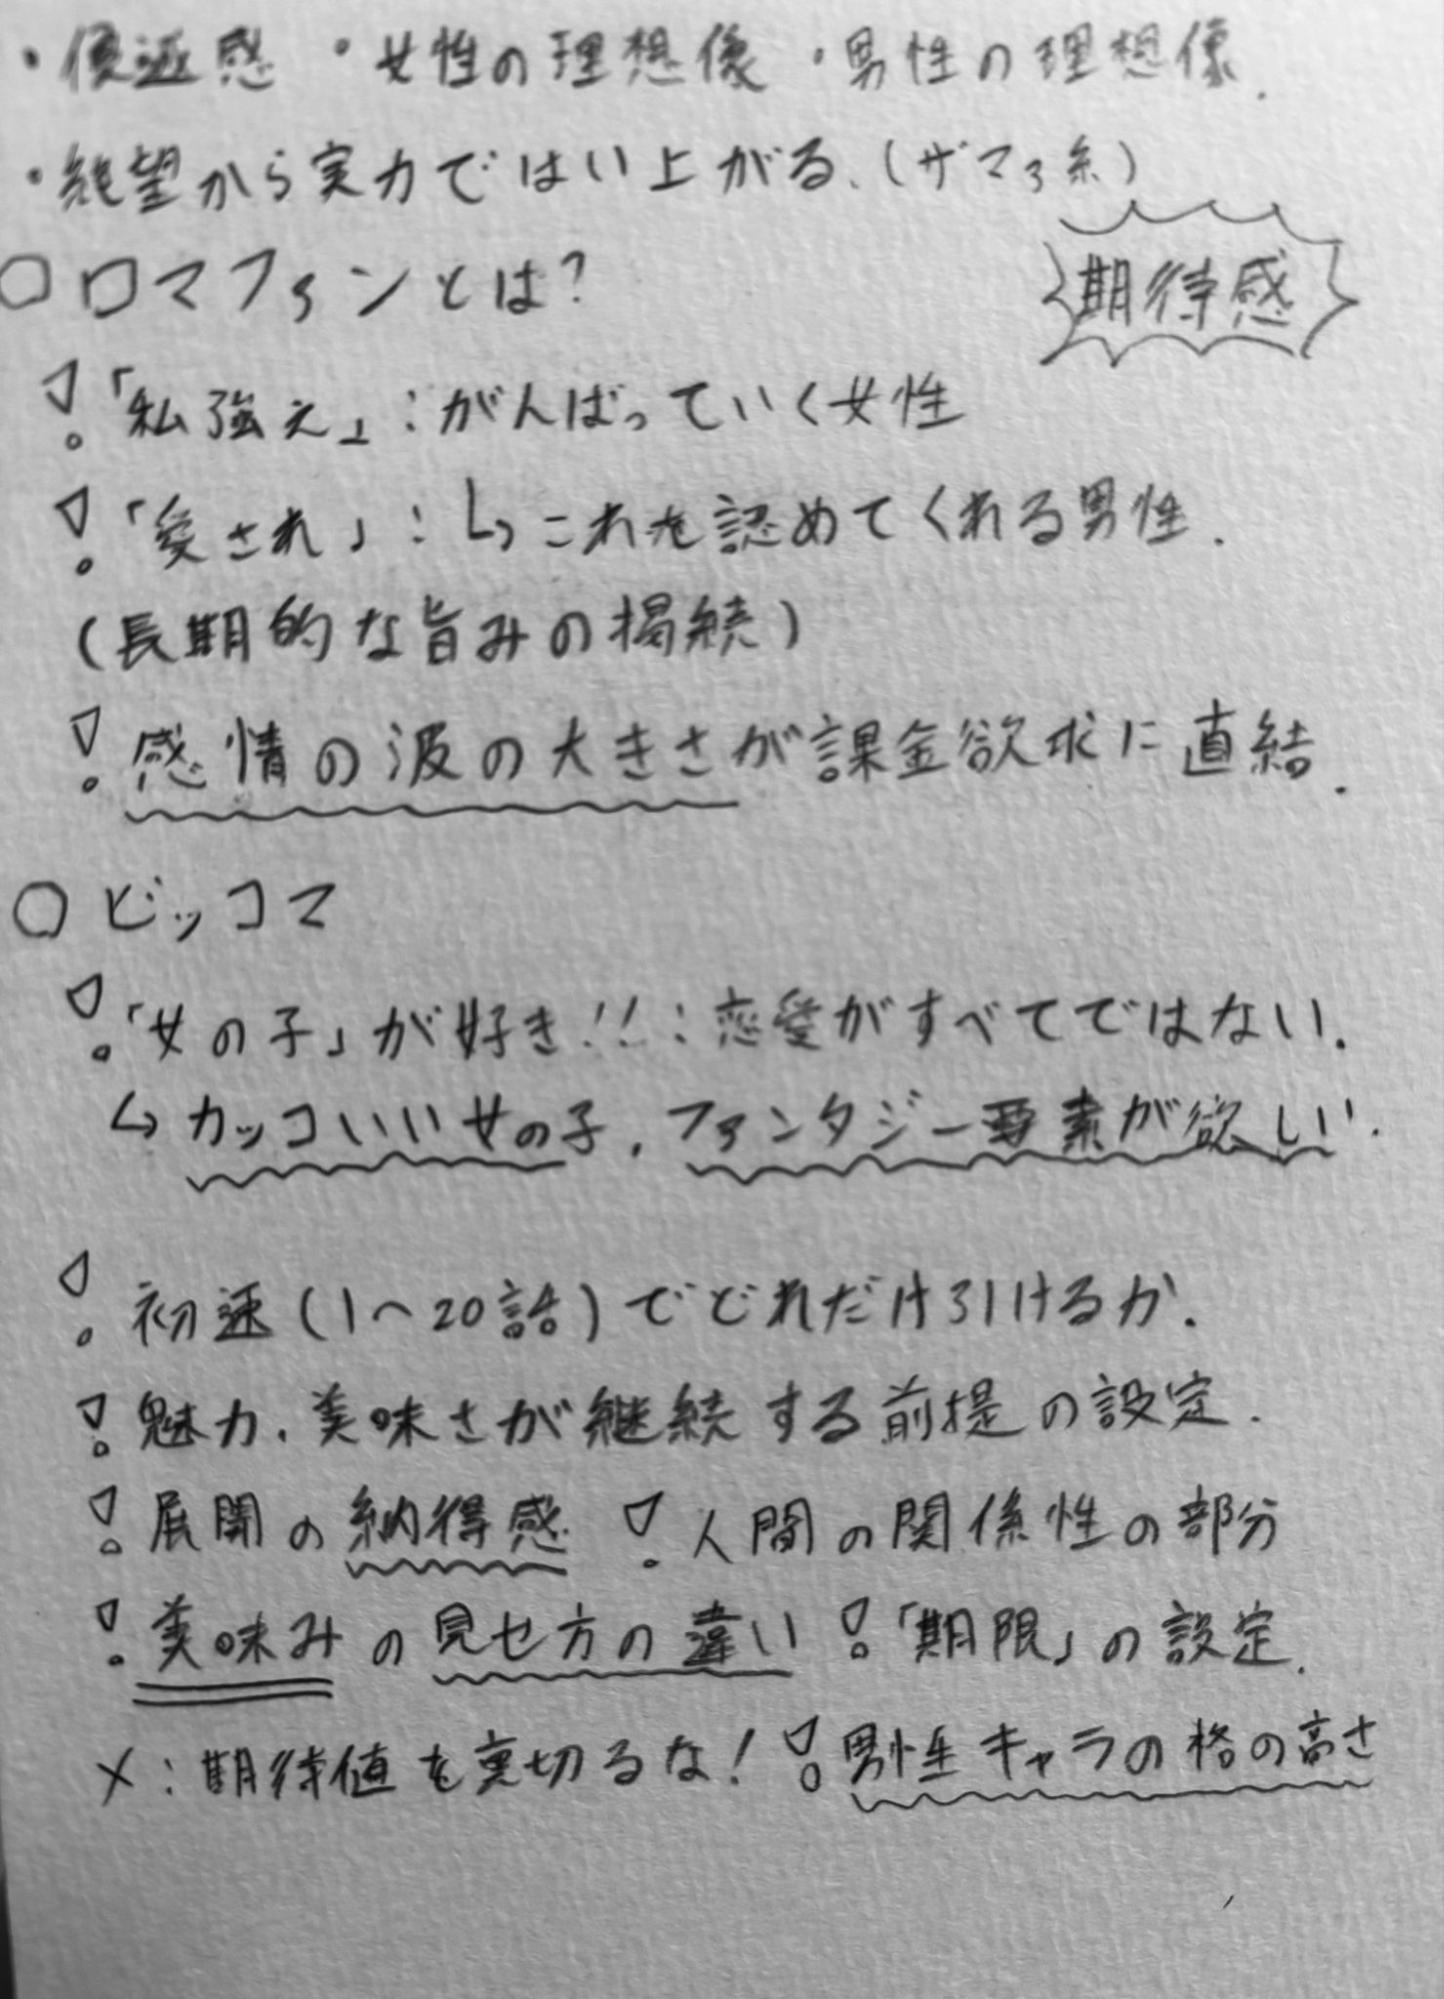 ・優遇感 ・女性の理想像 ・男性の理想像.
・絶望から実力ではい上がる、(ザマァ系)
○ロマファンとは?
期待感
!「私強え」:がんばっていく女性
!「愛され」:↳これを認めてくれる男性.
(長期的な旨みの掲続)
!感情の波の大きさが課金欲求に直結.
○ピッコマ
!「女の子」が好き!!:恋愛がすべてではない.
↳カッコいい女の子、ファンタジー要素が欲しい.
!初速(1〜20話)でどれだけ引けるか.
!魅力、美味さが継続する前提の設定.
!展開の納得感 !人間の関係性の部分
!美味みの見せ方の違い !「期限」の設定.
×:期待値を裏切るな! !男性キャラの格の高さ